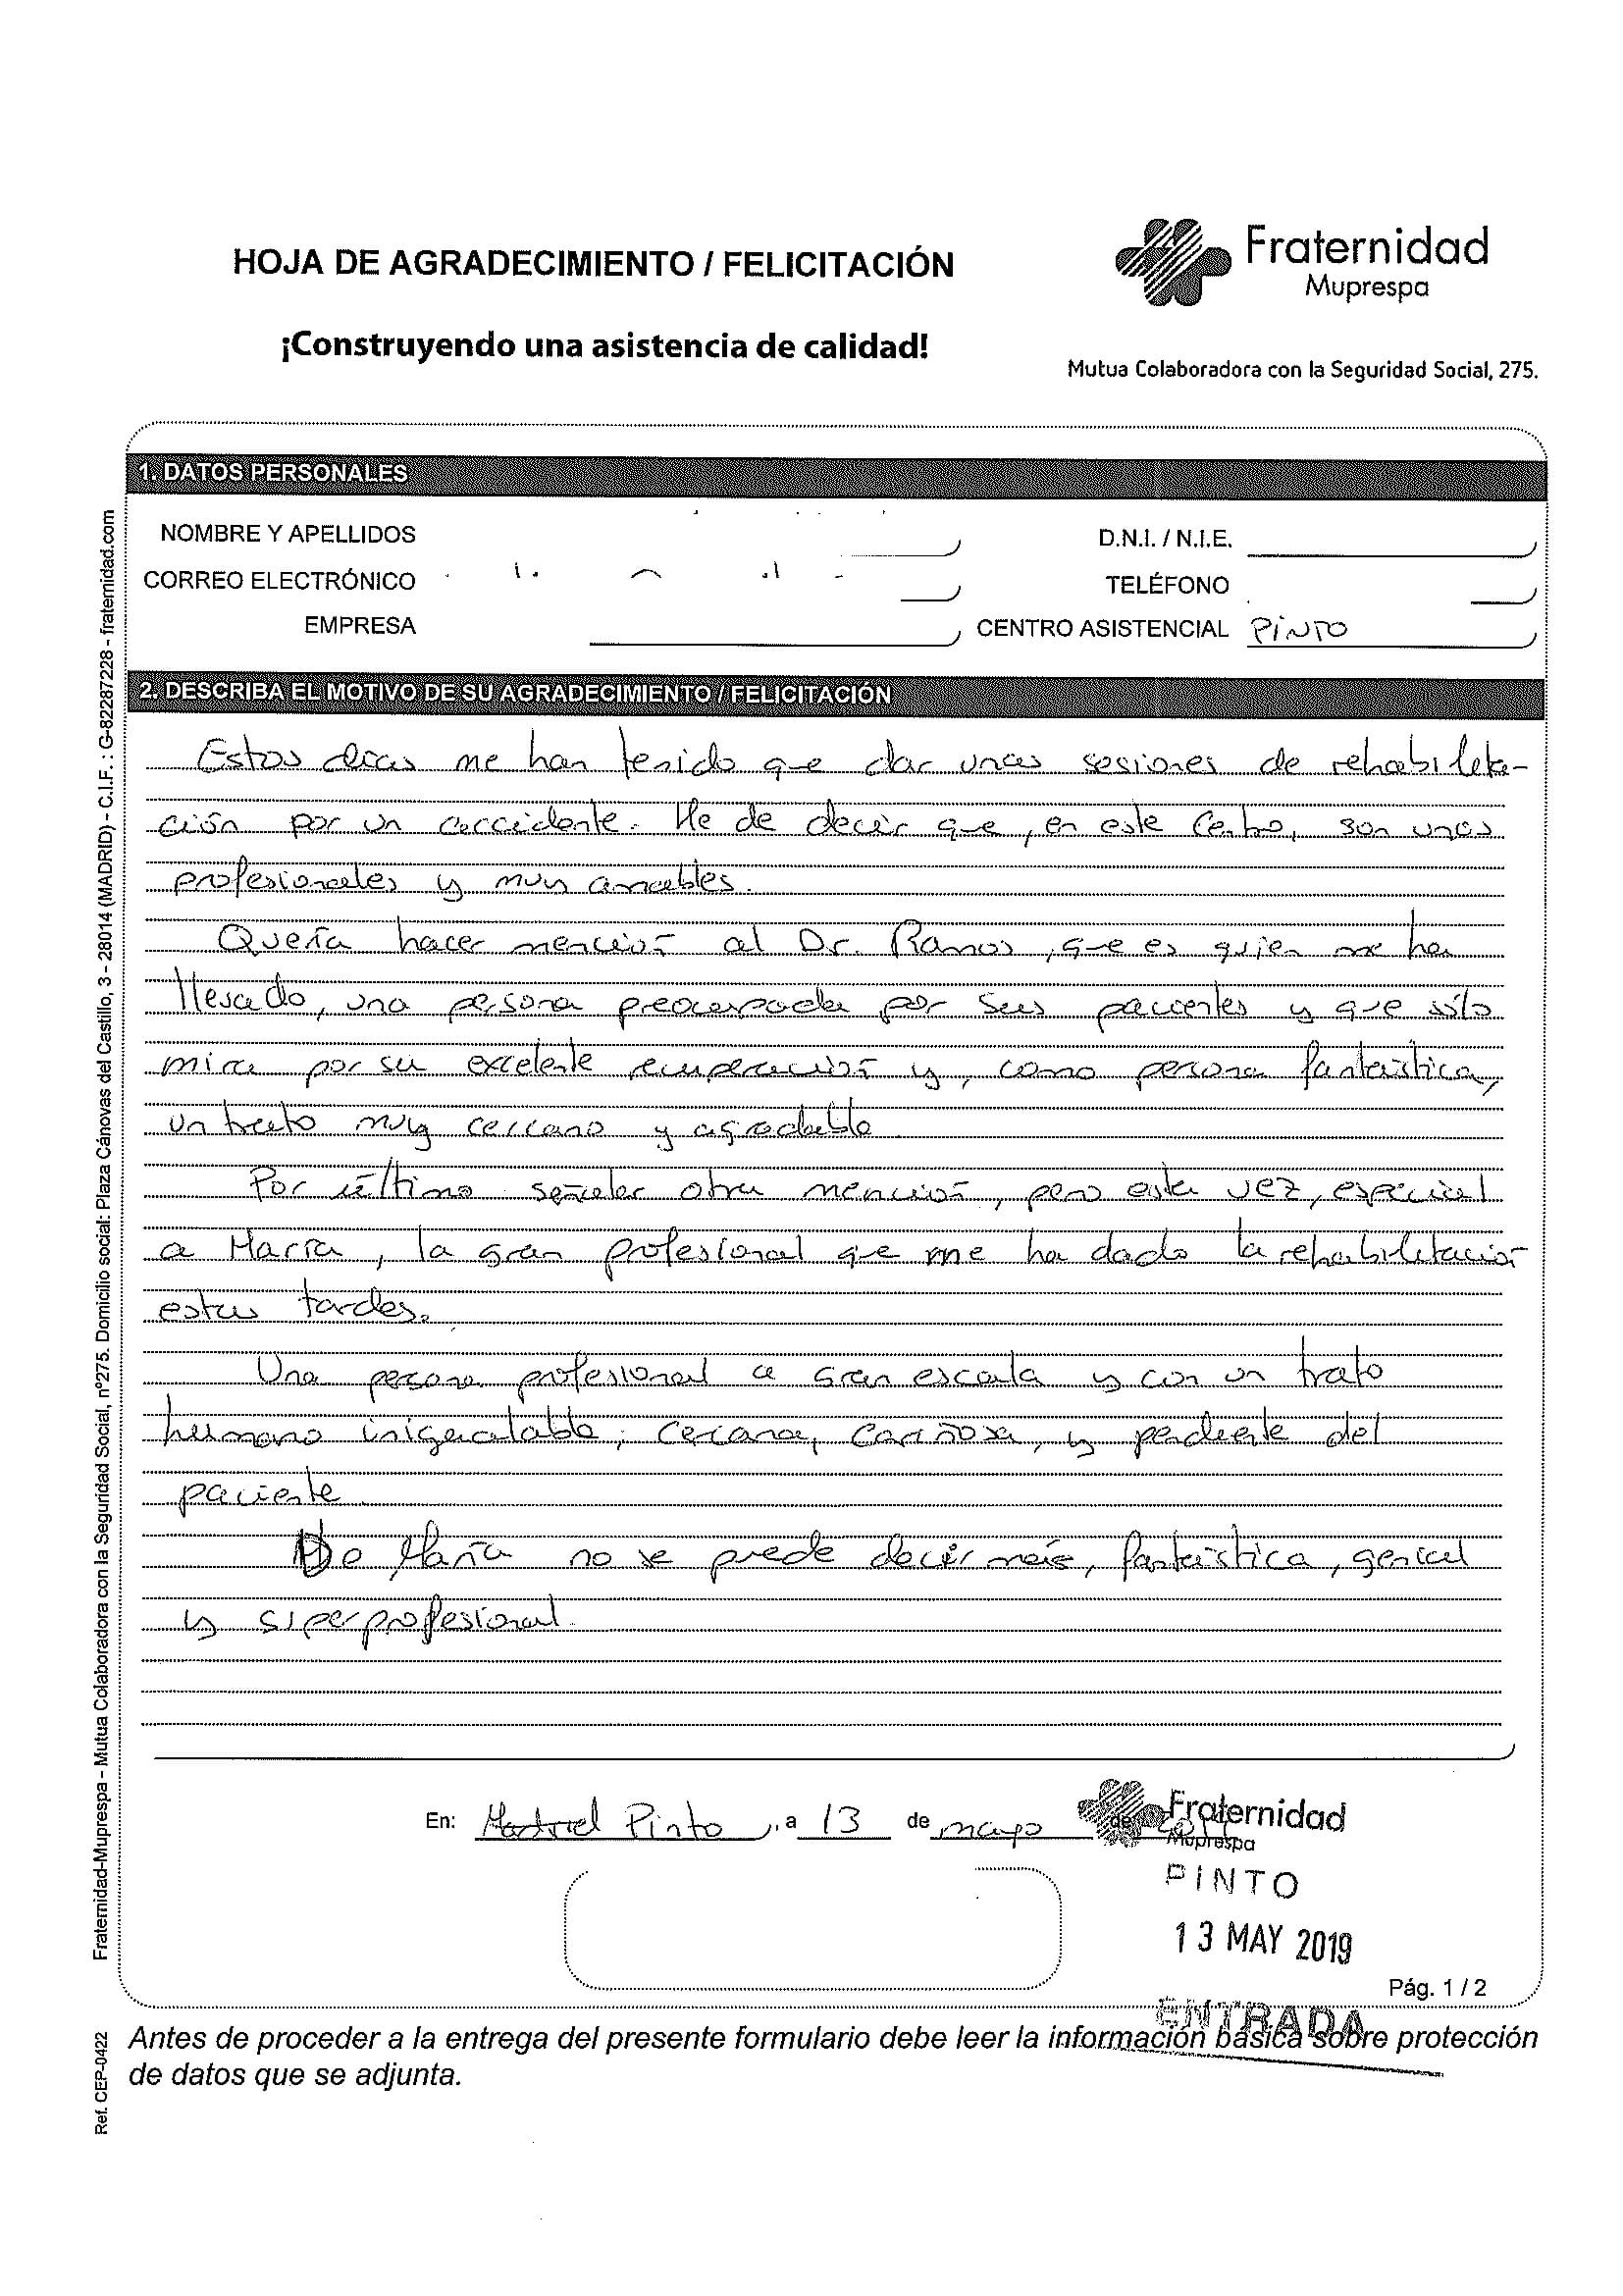 HOJA DE AGRADECIMIENTO / FELICITACIÓN
Fraternidad
Muprespa
¡Construyendo una asistencia de calidad!
Mutua Colaboradora con la Seguridad Social, 275.
1. DATOS PERSONALES
NOMBRE Y APELLIDOS
D.N.I. / N.I.E.
CORREO ELECTRÓNICO
TELÉFONO
EMPRESA
CENTRO ASISTENCIAL PINTO
2. DESCRIBA EL MOTIVO DE SU AGRADECIMIENTO / FELICITACIÓN
Estos días me han tenido que dar unas sesiones de rehabilita-
ción por un accidente. He de decir que, en este Centro, son unos
profesionales y muy amables.
Quería hacer mención al Dr. Ramos, que es quien me ha
llevado, una persona preocupada por sus pacientes y que sólo
mira por su excelente recuperación y, como persona fantástica,
un trato muy cercano y agradable.
Por último señalar otra mención, pero esta vez, especial
a María, la gran profesional que me ha dado la rehabilitación
estas tardes.
Una persona profesional a gran escala y con un trato
humano inigualable, cercana, cariñosa, y pendiente del
paciente.
De María no se puede decir más, fantástica, genial
y superprofesional.
En: Madrid Pinto, a 13 de mayo de
Fraternidad
Muprespa
PINTO
13 MAY 2019
Pág. 1 / 2
ENTRADA
Antes de proceder a la entrega del presente formulario debe leer la información básica sobre protección
de datos que se adjunta.
Fraternidad-Muprespa - Mutua Colaboradora con la Seguridad Social, nº275. Domicilio social: Plaza Cánovas del Castillo, 3 - 28014 (MADRID) - C.I.F. : G-82287228 - fraternidad.com
Ref. CEP-0422